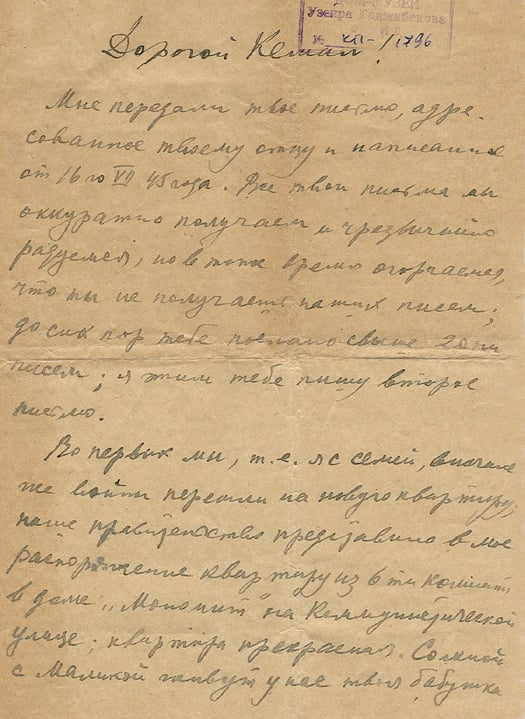 МУЗЕЙ
Узеира Гаджибекова
№ КП-1796
Дорогой Кемал!
Мне передали твое письмо, адре-
сованное твоему отцу и написанное
от 16го VII 45 года. Все твои письма мы
оккуратно получаем и чрезвычайно
радуемся, но в тоже время огорчаемся,
что ты не получаешь наших писем;
до сих пор тебе послано свыше 20ти
писем; я этим тебе пишу второе
письмо.
Во первых мы, т.е. я с семей, вначале
же войны перешли на новую квартиру;
наше правительство представило в мое
распоряжение квартиру из 6ти комнат
в доме „Монолит" на Коммунистической
улице; квартира прекрасная. Со мной
с Маликой живут у нас твоя бабушка